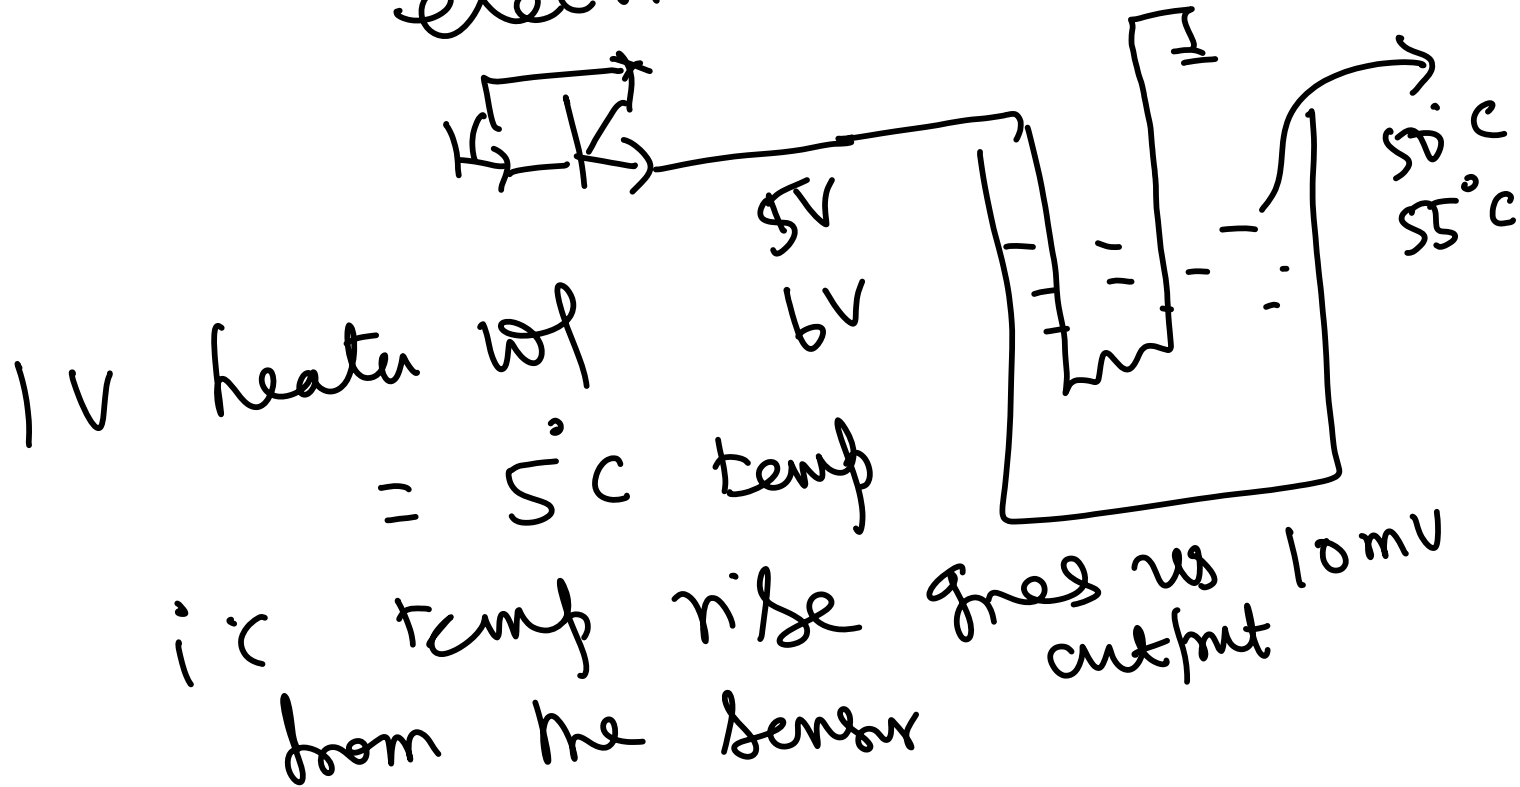 50°C
55°C
5V
6V
1V heater w/
= 5°C temp
1°C temp rise gives us 10mV
output
from the sensor